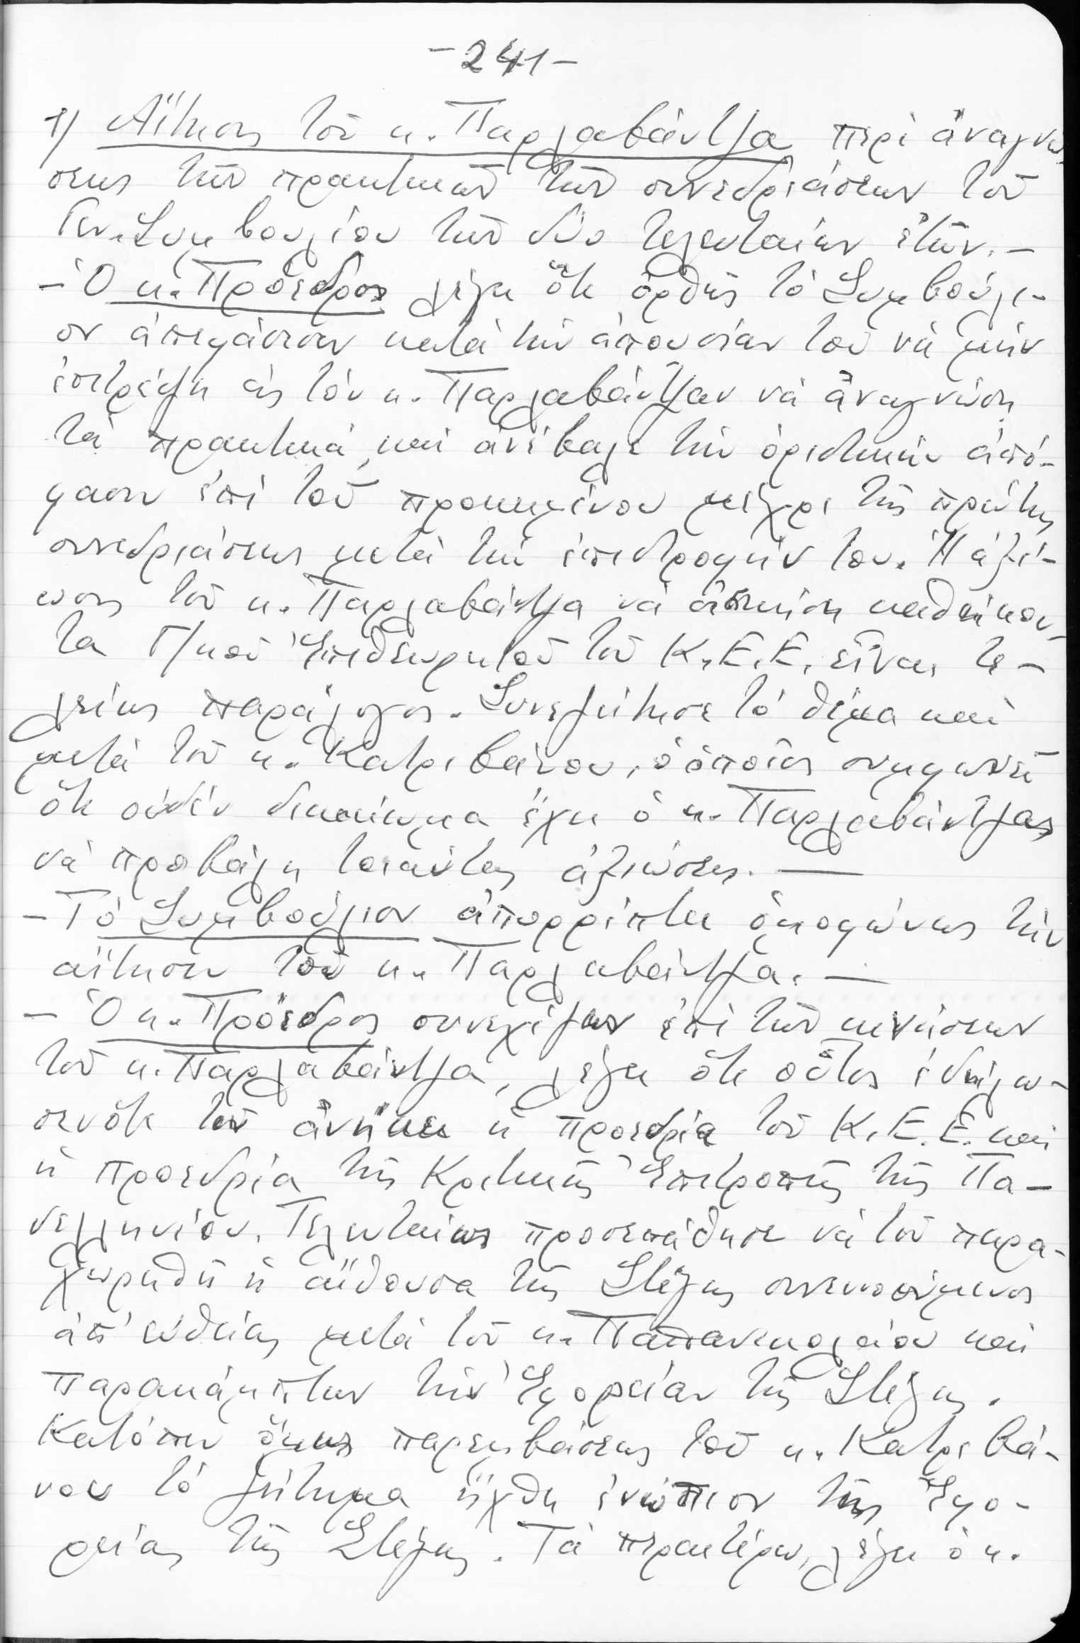 -241-
1) Αἴτησις τοῦ κ. Παρλαβάντζα περί ἀναγνώ-
σεως τῶν πρακτικῶν τῶν συνεδριάσεων τοῦ
Γεν. Συμβουλίου τῶν δύο τελευταίων ἐτῶν.-
- Ὁ κ. Πρόεδρος λέγει ὅτι ὀρθῶς τό Συμβούλι-
ον ἀπεφάσισεν κατά τήν ἀπουσίαν του νά μήν
ἐπιτρέψη εἰς τόν κ. Παρλαβάντζαν νά ἀναγνώση
τά πρακτικά, καί ἀνέβαλε τήν ὁριστικήν ἀπό-
φασιν ἐπί τοῦ προκειμένου μέχρι τῆς πρώτης
συνεδριάσεως μετά τήν ἐπιστροφήν του. Ἡ ἀξί-
ωσις τοῦ κ. Παρλαβάντζα νά ἀσκήση καθήκον-
τα Γ/κοῦ Ἐπιθεωρητοῦ τοῦ Κ.Ε.Ε. εἶναι τε-
λείως παράλογος. Συνεζήτησε τό θέμα καί
μετά τοῦ κ. Κατριβάνου, ὁ ὁποῖος συμφωνεῖ
ὅτι οὐδέν δικαίωμα ἔχει ὁ κ. Παρλαβάντζας
νά προβάλη τοιαύτας ἀξιώσεις. —
- Τό Συμβούλιον ἀπορρίπτει ὁμοφώνως τήν
αἴτησιν τοῦ κ. Παρλαβάντζα. —
- Ὁ κ. Πρόεδρος συνεχίζων ἐπί τῶν κινήσεων
τοῦ κ. Παρλαβάντζα, λέγει ὅτι οὗτος ἐδήλω-
σεν ὅτι τοῦ ἀνήκει ἡ προεδρία τοῦ Κ.Ε.Ε. καί
ἡ προεδρία τῆς Κριτικῆς Ἐπιτροπῆς τῆς Πα-
νελληνίου. Τελευταίως προσεπάθησε νά τοῦ παρα-
χωρηθῆ ἡ αἴθουσα τῆς Στέγης συνεννοούμενος
ἀπ' εὐθείας μετά τοῦ κ. Παπανικολάου καί
παρακάμπτων τήν Ἐφορείαν τῆς Στέγης.
Κατόπιν ὅμως παρεμβάσεως τοῦ κ. Κατριβά-
νου τό ζήτημα ἤχθη ἐνώπιον τῆς Ἐφο-
ρείας τῆς Στέγης. Τά περαιτέρω, λέγει ὁ κ.